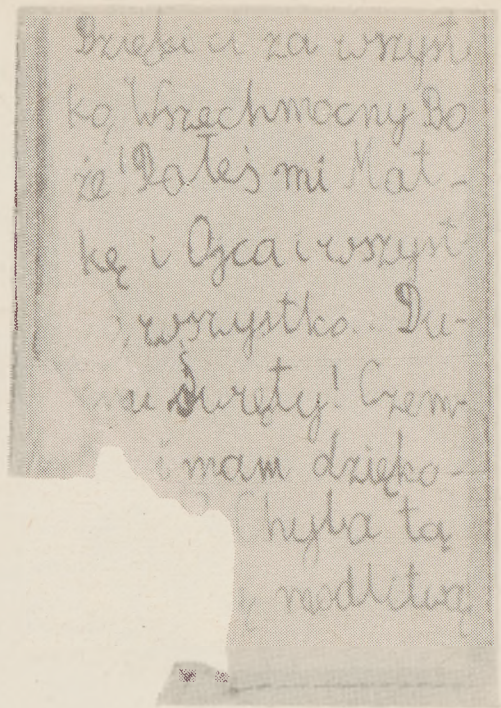 Dzięki ci za wszyst
ko, Wszechmocny Bo
że! Dałeś mi Mat-
kę i Ojca i wszyst
, wszystko.. Du-
Święty! Czem-
i mam dzięko-
Chyba tą
modlitwą